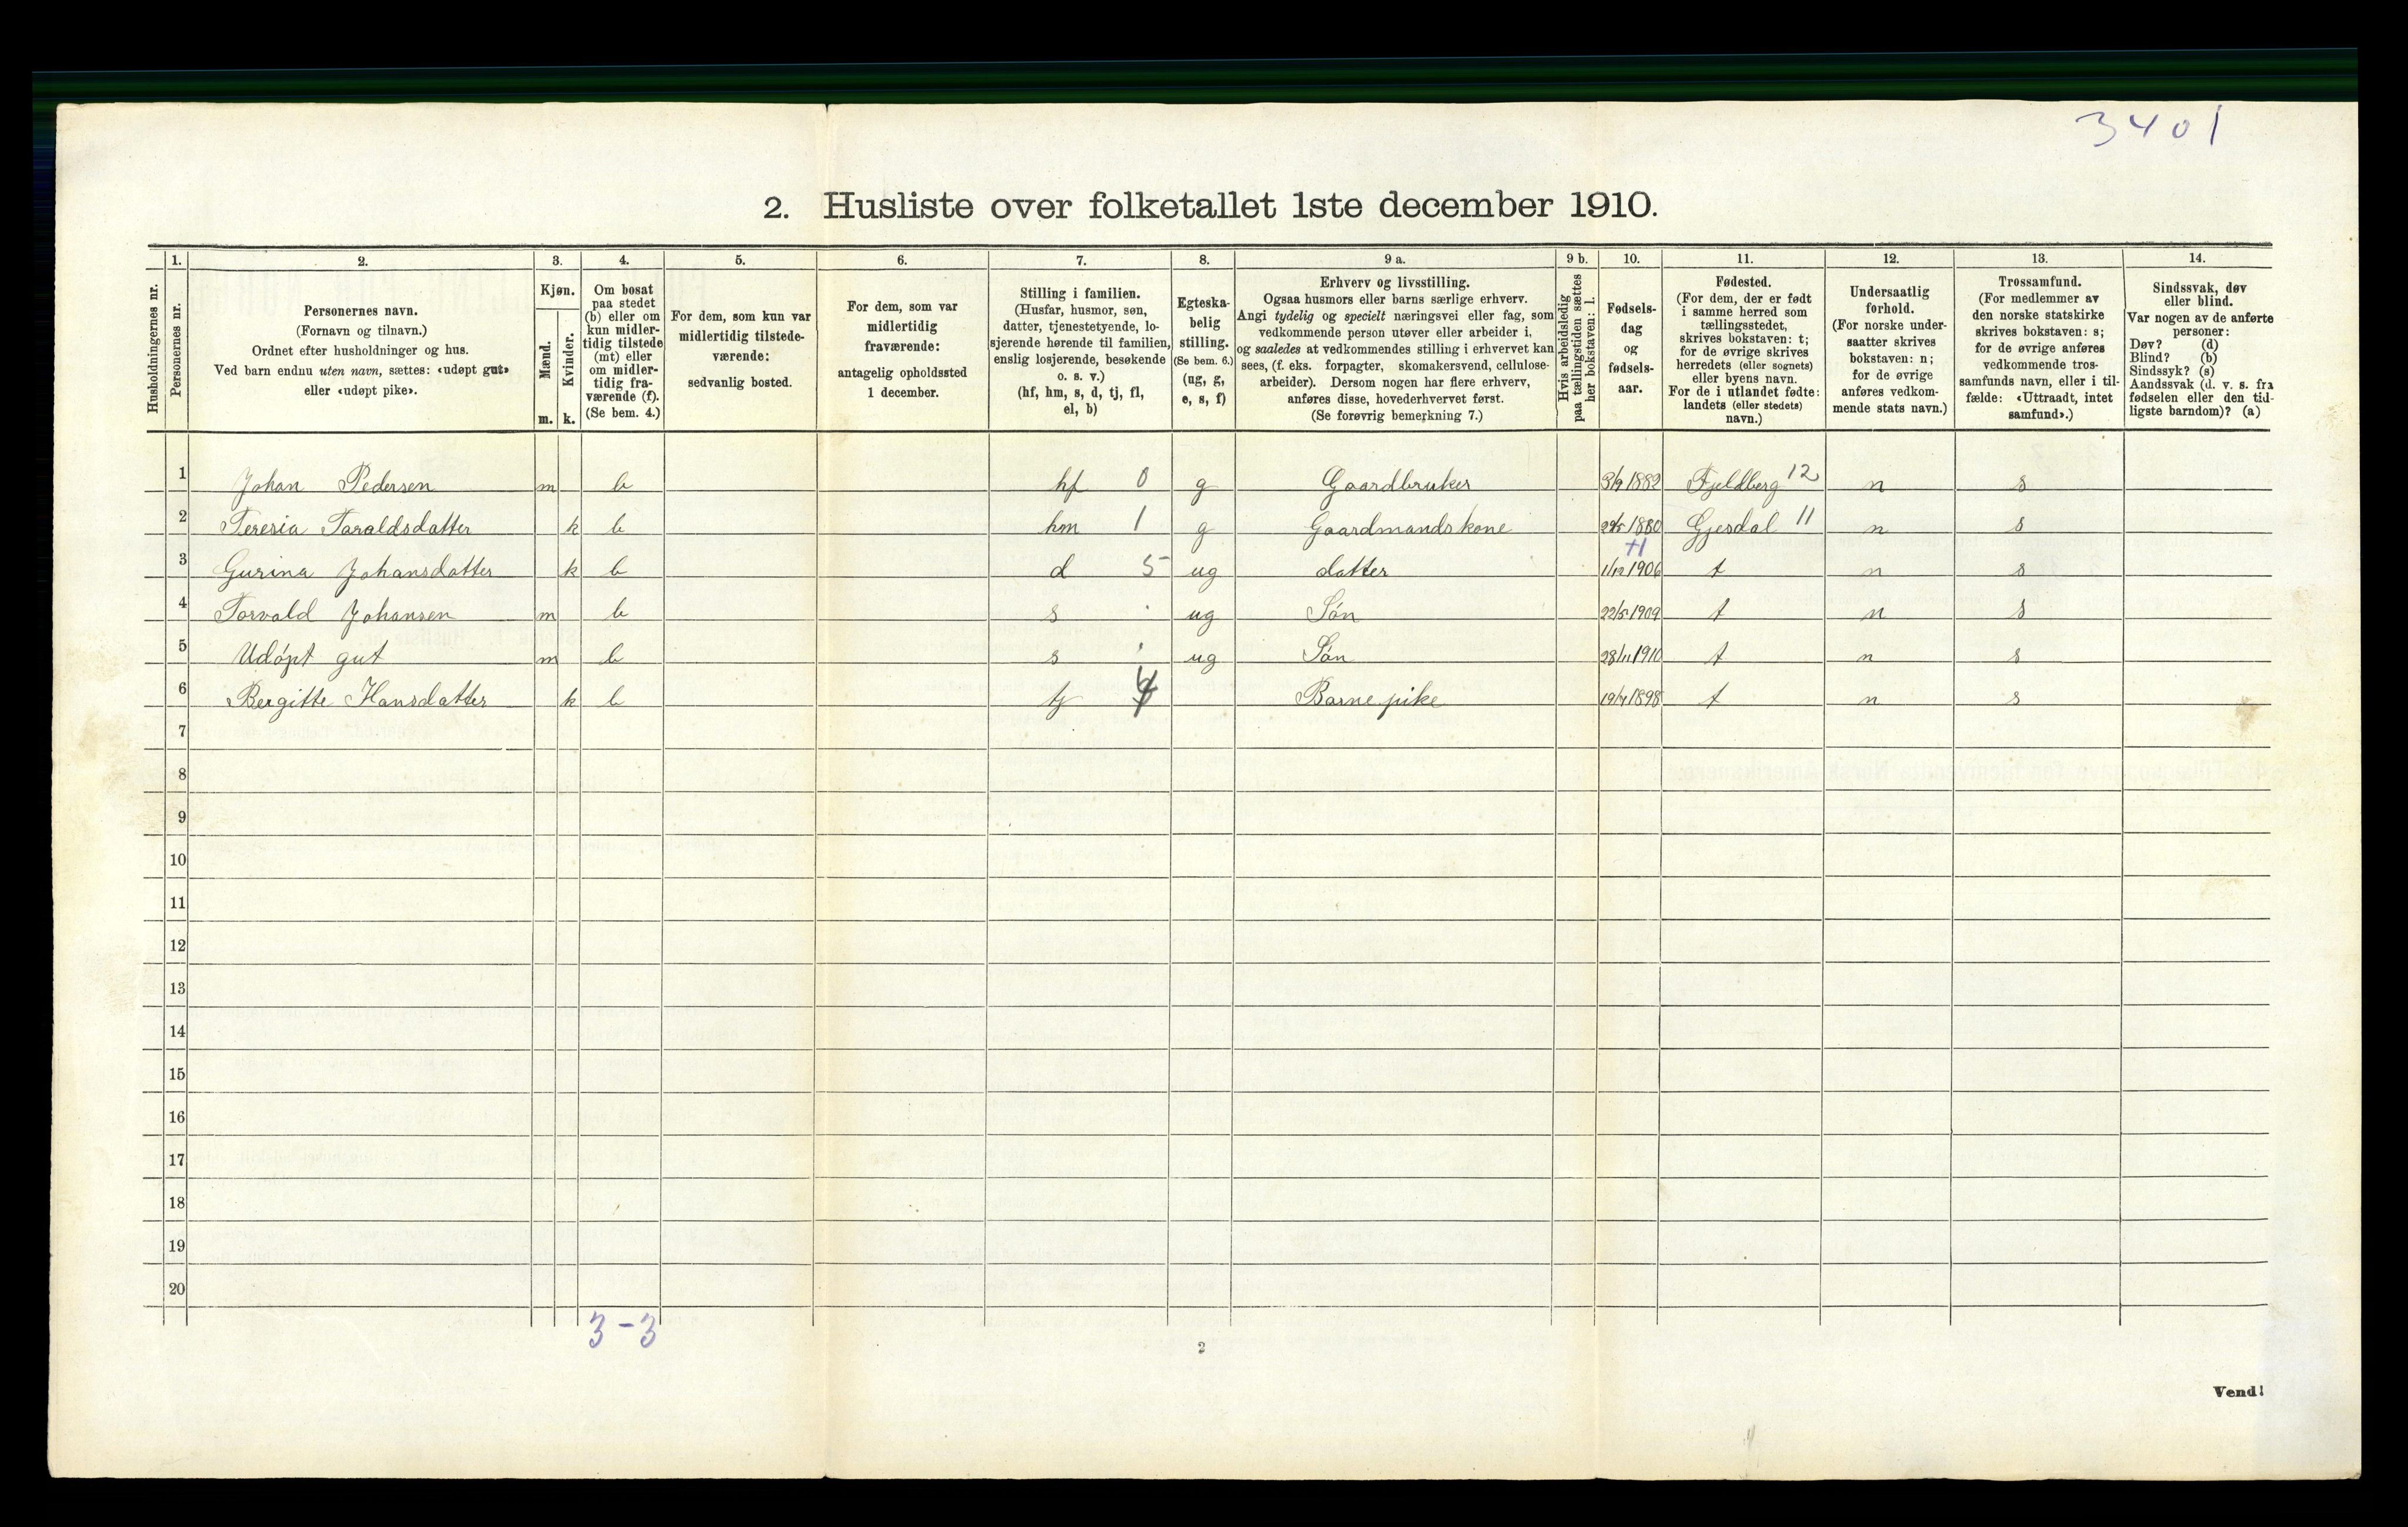 3401
2. Husliste over folketallet 1ste december 1910.
Husholdningernes nr.
1. 2. 3. 4. 5. 6. 7. 8. 9 a. 9 b. 10. 11. 12. 13. 14.
Personernes nr.
Personernes navn.
(Fornavn og tilnavn.)
Ordnet efter husholdninger og hus.
Ved barn endnu uten navn, sættes: «udøpt gut»
eller «udøpt pike».
Kjøn.
Mænd.
m.
Kvinder.
k.
Om bosat
paa stedet
(b) eller om
kun midler-
tidig tilstede
(mt) eller
om midler-
tidig fra-
værende (f).
(Se bem. 4.)
For dem, som kun var
midlertidig tilstede-
værende:
sedvanlig bosted.
For dem, som var
midlertidig
fraværende:
antagelig opholdssted
1 december.
Stilling i familien.
(Husfar, husmor, søn,
datter, tjenestetyende, lo-
sjerende hørende til familien,
enslig losjerende, besøkende
o. s. v.)
(hf, hm, s, d, tj, fl,
el, b)
Egteska-
belig
stilling.
(Se bem. 6.)
(ug, g,
e, s, f)
Erhverv og livsstilling.
Ogsaa husmors eller barns særlige erhverv.
Angi tydelig og specielt næringsvei eller fag, som
vedkommende person utøver eller arbeider i,
og saaledes at vedkommendes stilling i erhvervet kan
sees, (f. eks. forpagter, skomakersvend, cellulose-
arbeider). Dersom nogen har flere erhverv,
anføres disse, hovederhvervet først.
(Se forøvrig bemerkning 7.)
Hvis arbeidsledig
paa tællingstiden sættes
her bokstaven: l.
Fødsels-
dag
og
fødsels-
aar.
Fødested.
(For dem, der er født
i samme herred som
tællingsstedet,
skrives bokstaven: t;
for de øvrige skrives
herredets (eller sognets)
eller byens navn.
For de i utlandet fødte:
landets (eller stedets)
navn.)
Undersaatlig
forhold.
(For norske under-
saatter skrives
bokstaven: n;
for de øvrige
anføres vedkom-
mende stats navn.)
Trossamfund.
(For medlemmer av
den norske statskirke
skrives bokstaven: s;
for de øvrige anføres
vedkommende tros-
samfunds navn, eller i til-
fælde: «Uttraadt, intet
samfund».)
Sindssvak, døv
eller blind.
Var nogen av de anførte
personer:
Døv? (d)
Blind? (b)
Sindssyk? (s)
Aandssvak (d. v. s. fra
fødselen eller den tid-
ligste barndom)? (a)
1 Johan Pedersen m b hf 0 g Gaardbruker 3/9 1882 Fjeldberg 12 n s
2 Teresia Taraldsdatter k b hm 1 g Gaardmandskone 1880 Gjesdal 11 n s
+1
3 Gurina Johansdatter k b d 5 ug datter 1/12 1906 t n s
4 Torvald Johansen m b s ug Søn 22/5 1909 t n s
5 Udøpt gut m b s ug Søn 28/11 1910 t n s
6 Bergitte Hansdatter k b tj 4 Barnepike 1898 t n s
7
8
9
10
11
12
13
14
15
16
17
18
19
20
3-3
2
Vend!